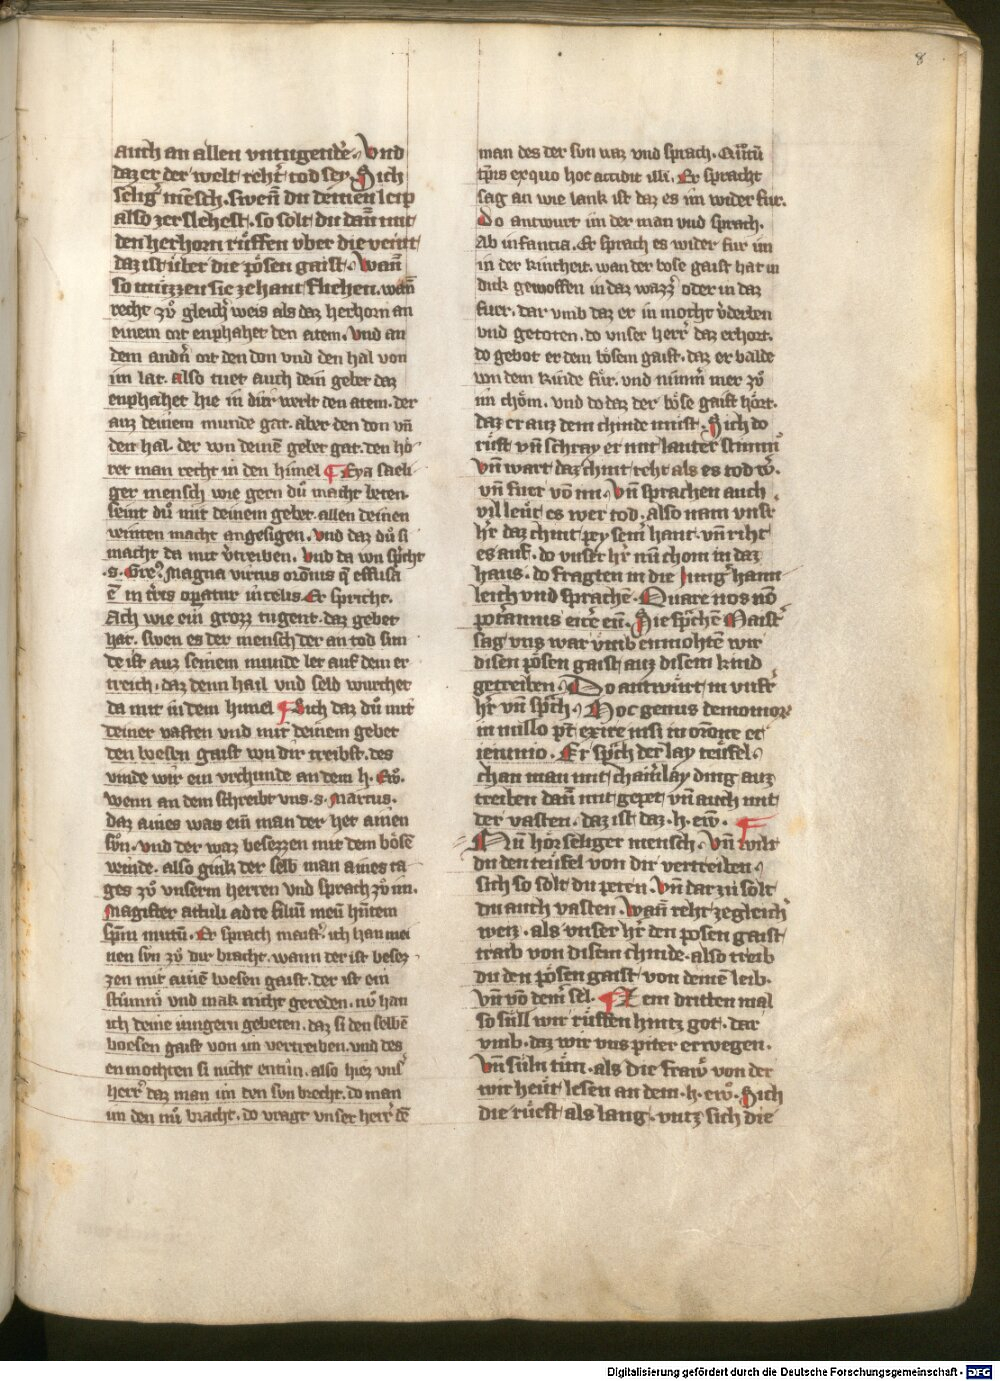 8
auch an allen vntugenden. Vnd
daz er der welt reht tod sey. Sich
selig mensch. swenn du deinen leip
also zerslehest. so solt du dann mit
den herhorn rüffen vber die veint
daz ist über die pösen gaist. Wann
so müzzen sie zehant fliehen. wann
recht zů gleicher weis als daz herhorn an
einem ort enphahet den atem. vnd an
dem andern ort den don vnd den hal von
im lat. also tuet auch dein gebet daz
enphahet hie in dirr werlt den atem. der
auz deinem munde gat. aber den don vn̄
den hal. der von deinē gebet gat. den hö
ret man recht in den himel ¶ Eya saeli
ger mensch wie gern dů macht beten.
seint dů mit deinem gebet. allen deinen
veinten macht angesigen. vnd daz dů si
macht da mit vertreiben. vnd da von spricht
.s. Gre⁹. Magna virtus oronis que effusa
ē in terris operatur in celis. Er spricht.
Ach wie ein grozz tugent. daz gebet
hat. swen es der mensch der an tod sun
de ist auz seinem munde let auf dem er
treich. daz denn hail vnd seld wurchet
da mit in dem himel ¶ Sich daz dů mit
deiner vasten vnd mit deinem gebet
den boesen gaist von dir treibst. des
vinde wir ein vrchunde an dem h. Ew.
wenn an dem schreibt vns .s. Marcus.
daz aines was ein man der het ainen
sůn. vnd der waz besezzen mit dem bösē
veinde. also gink der selb man aines ta
ges zů vnserm herren vnd sprach zů im.
Magister attuli ad te filiū meū hn̄tem
spm̄ mutū. Er sprach maister. ich han mei
nen svn zů dir bracht. wann der ist besez
zen mit ainē boesen gaist. der ist ein
stummer vnd mak nicht gereden. nů han
ich deine iungern gebeten. daz si den selbē
boesen gaist von im vertreiben. vnd des
en mochten si nicht entůn. also hiez vnser
herre daz man im den svn brecht. do man
im den nů bracht. do vragt vnser herre dē
man des der svn waz vnd sprach. Quantū
tp̄ris ex quo hoc accidit illi. Er spracht
sag an wie lank ist daz es im wider fur.
Do antwurt im der man vnd sprach.
Ab infancia. Er sprach es wider fur im
in der kintheit. wan der bose gaist hat in
dick geworffen in daz wazzer oder in daz
fuer. dar vmb daz er in mocht verderben
vnd getoten. do vnser herre daz erhort.
do gebot er dem bösem gaist. daz er balde
von dem kinde für. vnd nimmer mer zů
im chöm. vnd do daz der böse gaist hört.
daz er auz dem chinde must. Sich do
ruft vn̄ schray er mit lauter stimm
Vn̄ wart daz chint reht als es tod wer.
vn̄ fuer võ im. Vn̄ sprachen auch
vil leüt es wer tod. also nam vnser
hr̄ daz chint pey seiner hant. vn̄ riht
es auf. do vnser hr̄ nun chom in daz
haus. do fragten in die iunger haim
leich vnd sprachen. Quare nos nō
potuimus eicere eum. Sie sprachen Maister
sag vns war vmb enmohten wir
disen pösen gaist auz disem kind
getreiben. Do antwürt in vnser
hr̄ vn̄ sprach. Hoc genus demoniorum
in nullo pt̄ exire nisi in orone et
ieiunio. Er sprach der lay teüfel.
chan man mit chainerlay ding auz
treiben dann mit gepet vn̄ auch mit
der vasten. daz ist daz .h. ew. ¶
Nun hör seliger mensch. Vn̄ wilt
du den teüfel von dir vertreiben.
sich so solt du peten. Vn̄ dar zu solt
du auch vasten. Wann reht zegleicher
weiz. als vnser hr̄ den posen gaist
traib von disem chinde. also treib
du den pösen gaist von deinē leib.
Vn̄ võ deiner sel. ¶ Zem dritten mal
so süll wir rüffen hintz got. dar
vmb. daz wir vns piter erwegen.
Vn̄ süln tün. als die fraw von der
wir heüt lesen an dem .h. ew. Sich
die rüeft als lang. vntz sich die
Digitalisierung gefördert durch die Deutsche Forschungsgemeinschaft - DFG